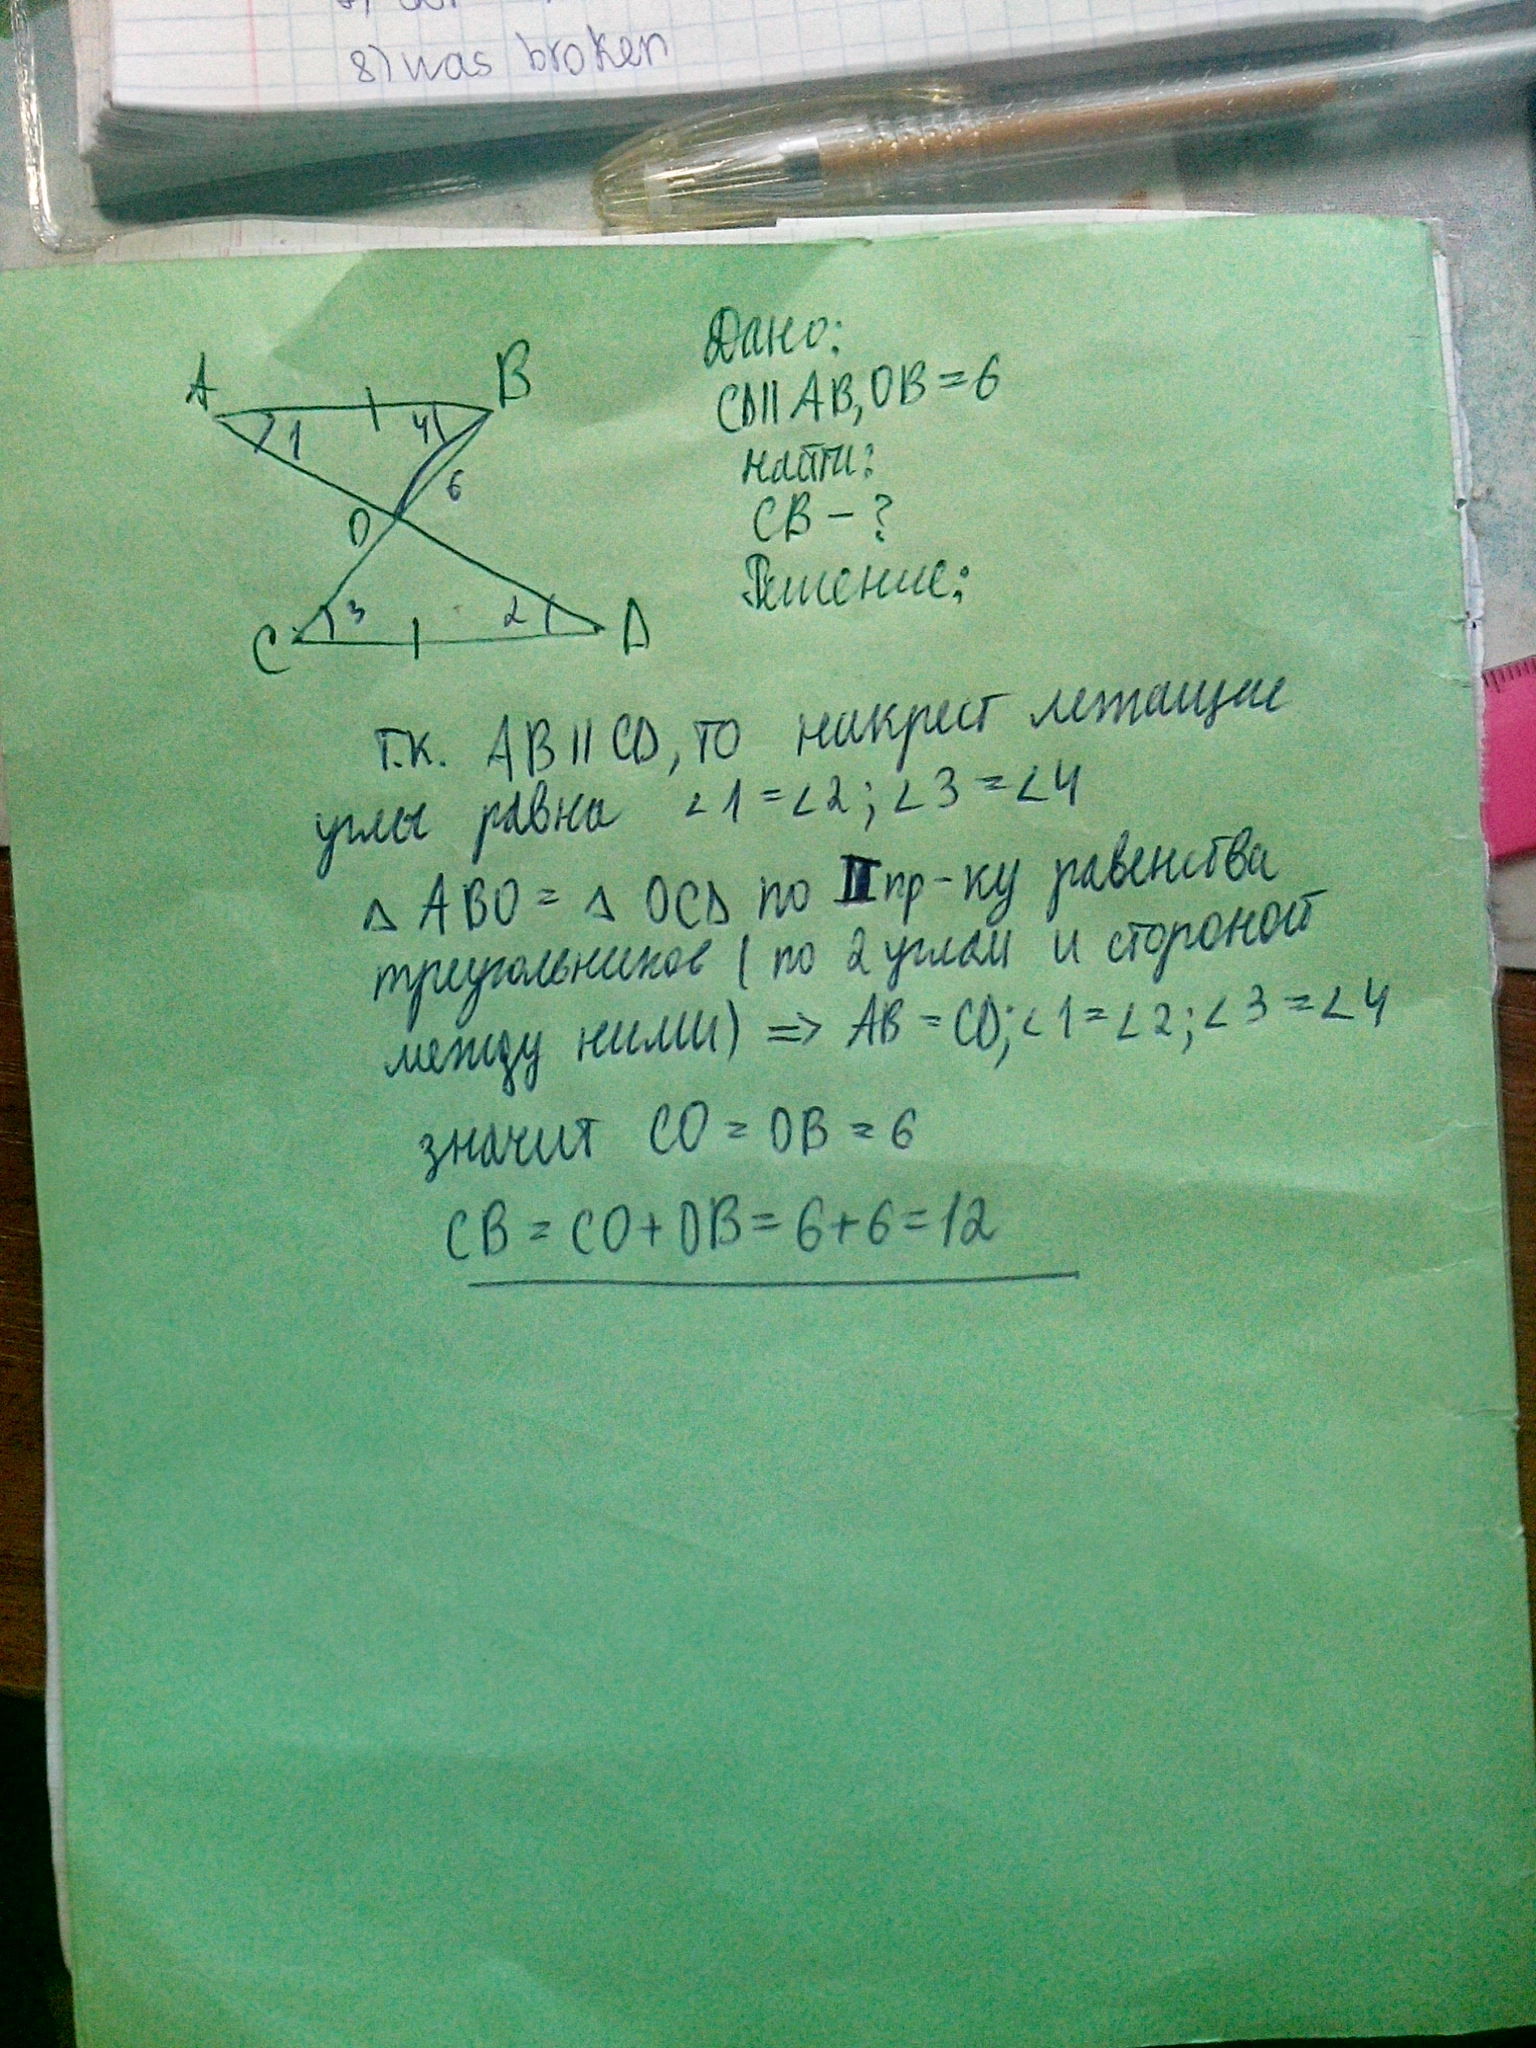 8) was broken
A
B
1
4
6
O
3
2
C
D
Дано:
CD || AB, OB = 6
Найти:
CB - ?
Решение:
т.к. AB || CD, то накрест лежащие
углы равны ∠1 = ∠2; ∠3 = ∠4
Δ ABO = Δ OCD по II пр-ку равенства
треугольников (по 2 углам и стороной
между ними) => AB = CD; ∠1 = ∠2; ∠3 = ∠4
значит CO = OB = 6
CB = CO + OB = 6 + 6 = 12